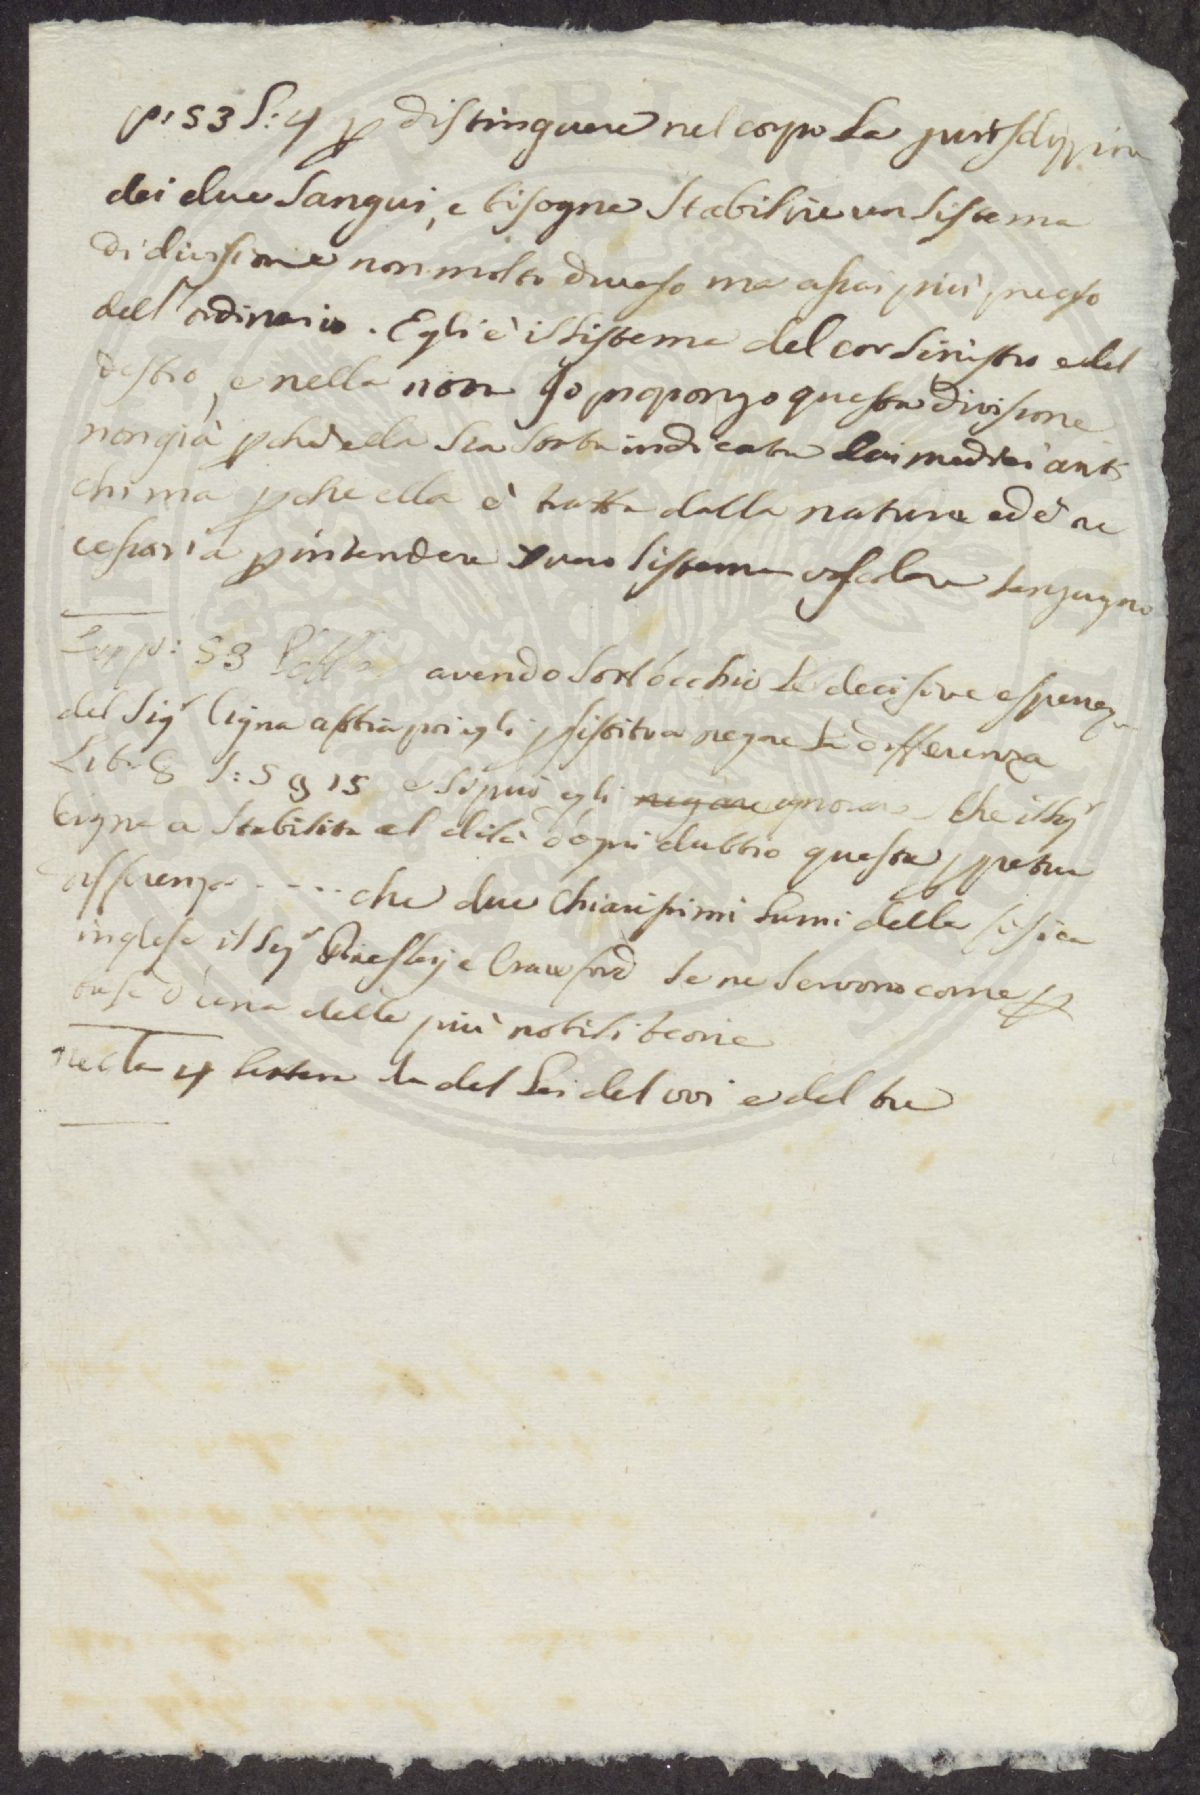 p: 53 l: 4 p distinguere nel corpo la jurisdizzion
dei due sangui, e bisogna stabilire un sistema
di divisione non molto diverso ma assai più preciso
dell'ordinario. Egli è il sistema del cor sinistro e del
destro, e nella nota Io propongo questa divisione
non già pchè ella sia sorta indicata dai medici anti
chi ma pche ella è tratta dalla natura ed è ne
cessaria p intendere sistema vascolare sanguigno
p: 53 avendo sott'occhio le decisive esperienze
del Sigr Cigna abbia poi egli psistito a negare la differenza
Lib. 8 l: 5 9 15 e si può egli negare ignorare che il Sigr
Cigna a stabilita al di là d'ogni dubbio questa ppetua
differenza .... che due chiarissimi lumi della fisica
inglese il Sigr Priestley e Crawford se ne servono come p
base d'una delle più nobili teorie
nella 4 lettera la del lei del voi e del tu